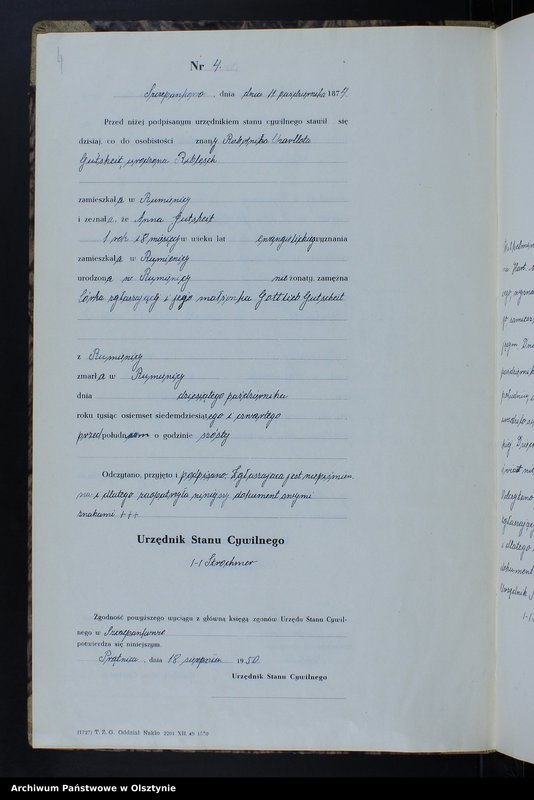 4
Nr 4.
Szczepankowo, dnia dnia 12 października 1874.
Przed niżej podpisanym urzędnikiem stanu cywilnego stawił się
dzisiaj, co do osobistości znany Robotnika
Gutsheit, urodzona
zamieszkała w Rumienicy
i zeznała, że Anna Gutsheit
1 rok i 8 miesięcy w wieku lat ewangelickiego wyznania
zamieszkała w Rumienicy
urodzona w Rumienicy nie żonaty, zamężna
Córka zgłaszającej i jego małżonka Gottlieb Gutsheit
z Rumienicy
zmarła w Rumienicy
dnia dziesiątego października
roku tysiąc osiemset siedemdziesiątego i czwartego
przedpołudniem o godzinie szóstej
Odczytano, przyjęto i podpisano. Zgłaszająca jest niepiśmien
na i dlatego zaopatrzyła niniejszy dokument swymi
znakami +++
Urzędnik Stanu Cywilnego
/-/
Zgodność powyższego wyciągu z główną księgą zgonów Urzędu Stanu Cywil-
nego w Szczepankowie
potwierdza się niniejszym.
Prątnica, dnia 18 sierpnia 1950.
Urzędnik Stanu Cywilnego
(1727) T. Z. G. Oddział Nakło 2201 XII. 49
Archiwum Państwowe w Olsztynie